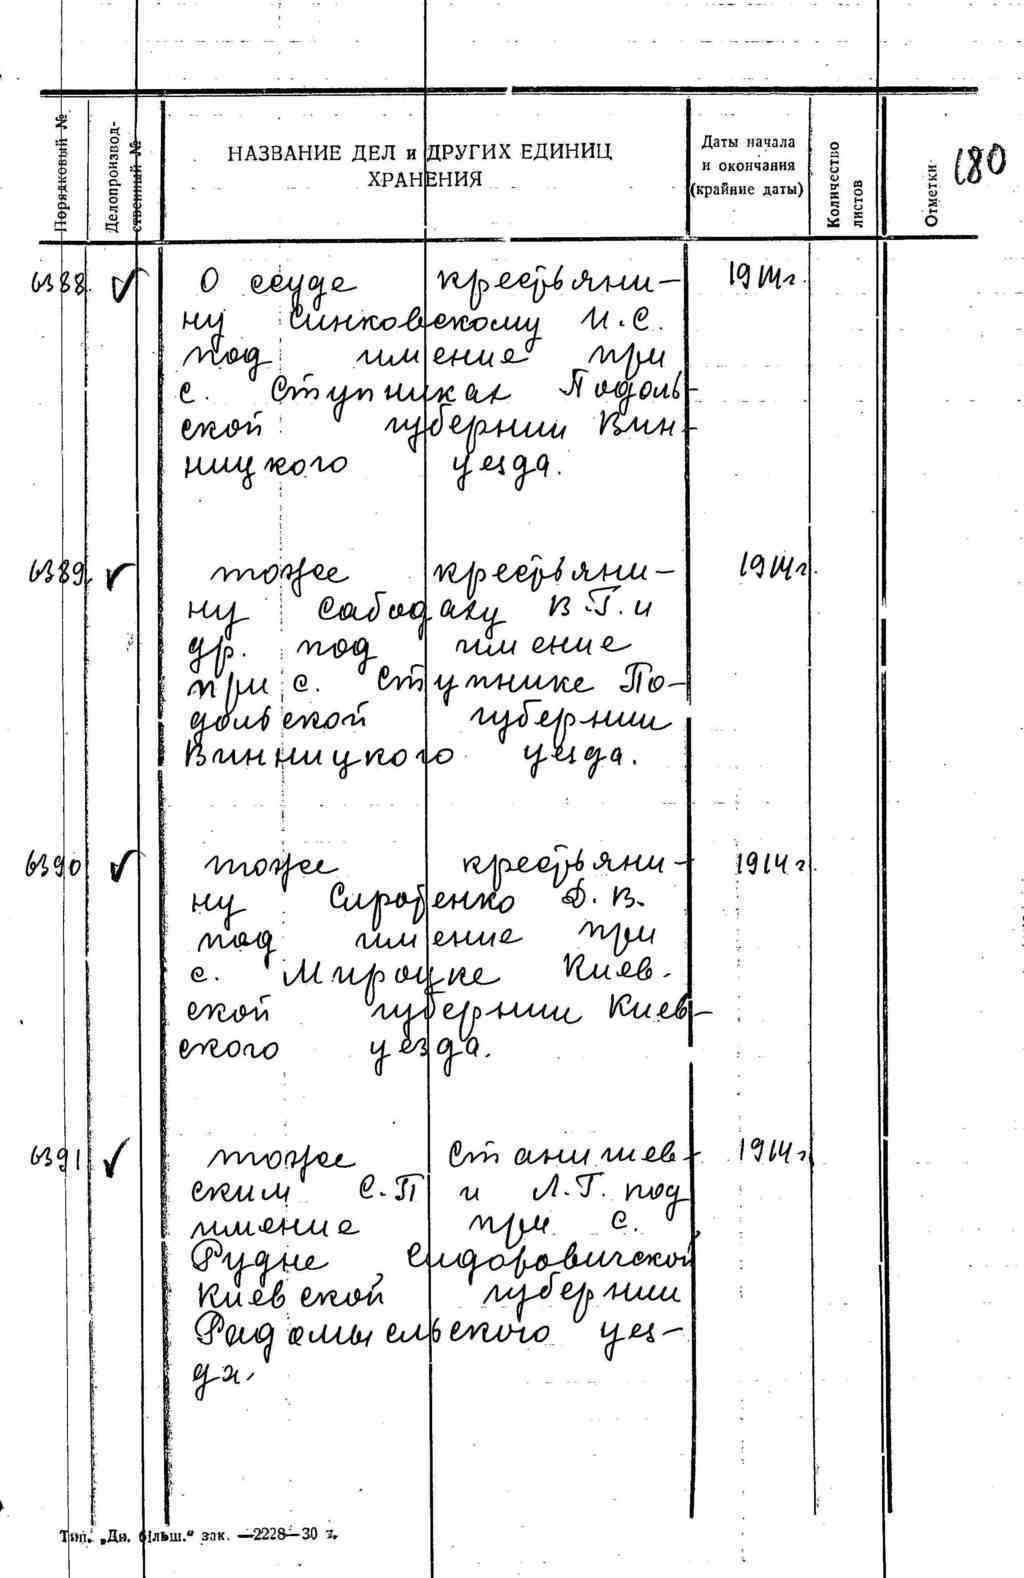 Порядковый №
Делопроизвод-
ственный №
НАЗВАНИЕ ДЕЛ и ДРУГИХ ЕДИНИЦ
ХРАНЕНИЯ
Даты начала
и окончания
(крайние даты)
Количество
листов
Отметки
180
6388. ✓ О ссуде крестьяни- 1914г.
ну Синковскому И.С.
под имение при
с. Ступниках Подоль-
ской губернии Вин-
ницкого уезда.
6389. ✓ тоже крестьяни- 1914г.
ну Сабодаху В.Г. и
др. под имение
при с. Ступнике По-
дольской губернии
Винницкого уезда.
6390 ✓ тоже крестьяни- 1914 г.
ну Сиробенко Д.В.
под имение при
с. Мироцке Киев-
ской губернии Киев-
ского уезда.
6391 ✓ тоже Станишев- 1914г
ским С.П и Л.Г. под
имение при с.
Рудне Сидоровичской
Киевской губернии
Радомысльского уез-
да.
Тип. „Ди. більш.“ зак. —2228—30 т.